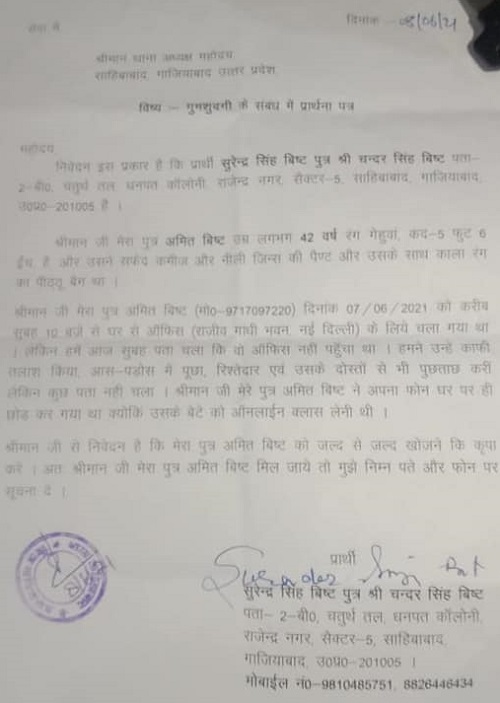 सेवा में
दिनांक - 08/06/21
श्रीमान थाना अध्यक्ष महोदय
साहिबाबाद, गाजियाबाद उत्तर प्रदेश
विषय :- गुमशुदगी के संबध में प्रार्थना पत्र
महोदय
निवेदन इस प्रकार है कि प्रार्थी सुरेन्द्र सिंह बिष्ट पुत्र श्री चन्दर सिंह बिष्ट पता-
2-बी0, चतुर्थ तल, धनपत कॉलोनी, राजेन्द्र नगर, सैक्टर-5, साहिबाबाद, गाजियाबाद,
उ0प्र0-201005 है ।
श्रीमान जी मेरा पुत्र अमित बिष्ट उम्र लगभग 42 वर्ष रंग गेहुवां, कद-5 फुट 6
ईंच, है और उसने सफेद कमीज और नीली जिन्स की पैण्ट और उसके साथ काला रंग
का पीठ्ठू बैग था ।
श्रीमान जी मेरा पुत्र अमित बिष्ट (मो0-9717097220) दिनांक 07/06/2021 को करीब
सुबह 10 बजे से घर से ऑफिस (राजीव गाधी भवन, नई दिल्ली) के लिये चला गया था
। लेकिन हमें आज सुबह पता चला कि वो ऑफिस नही पहुँचा था । हमने उन्हे काफी
तलाश किया, आस-पडोस में पूछा, रिश्तेदार एवं उसके दोस्तों से भी पुछताछ करीं
लेकिन कुछ पता नही चला । श्रीमान जी मेरे पुत्र अमित बिष्ट ने अपना फोन घर पर ही
छोड कर गया था क्योकि उसके बेटे को ऑनलाईन क्लास लेनी थी ।
श्रीमान जी से निवेदन है कि मेरा पुत्र अमित बिष्ट को जल्द से जल्द खोजनें कि कृपा
करे । अतः श्रीमान जी मेरा पुत्र अमित बिष्ट मिल जाये तो मुझे निम्न पते और फोन पर
सूचना दें ।
प्रार्थी
Surender Singh Bist
सुरेन्द्र सिंह बिष्ट पुत्र श्री चन्दर सिंह बिष्ट
पता- 2-बी0, चतुर्थ तल, धनपत कॉलोनी,
राजेन्द्र नगर, सैक्टर-5, साहिबाबाद,
गाजियाबाद, उ0प्र0-201005 ।
मोबाईल नं0-9810485751, 8826446434